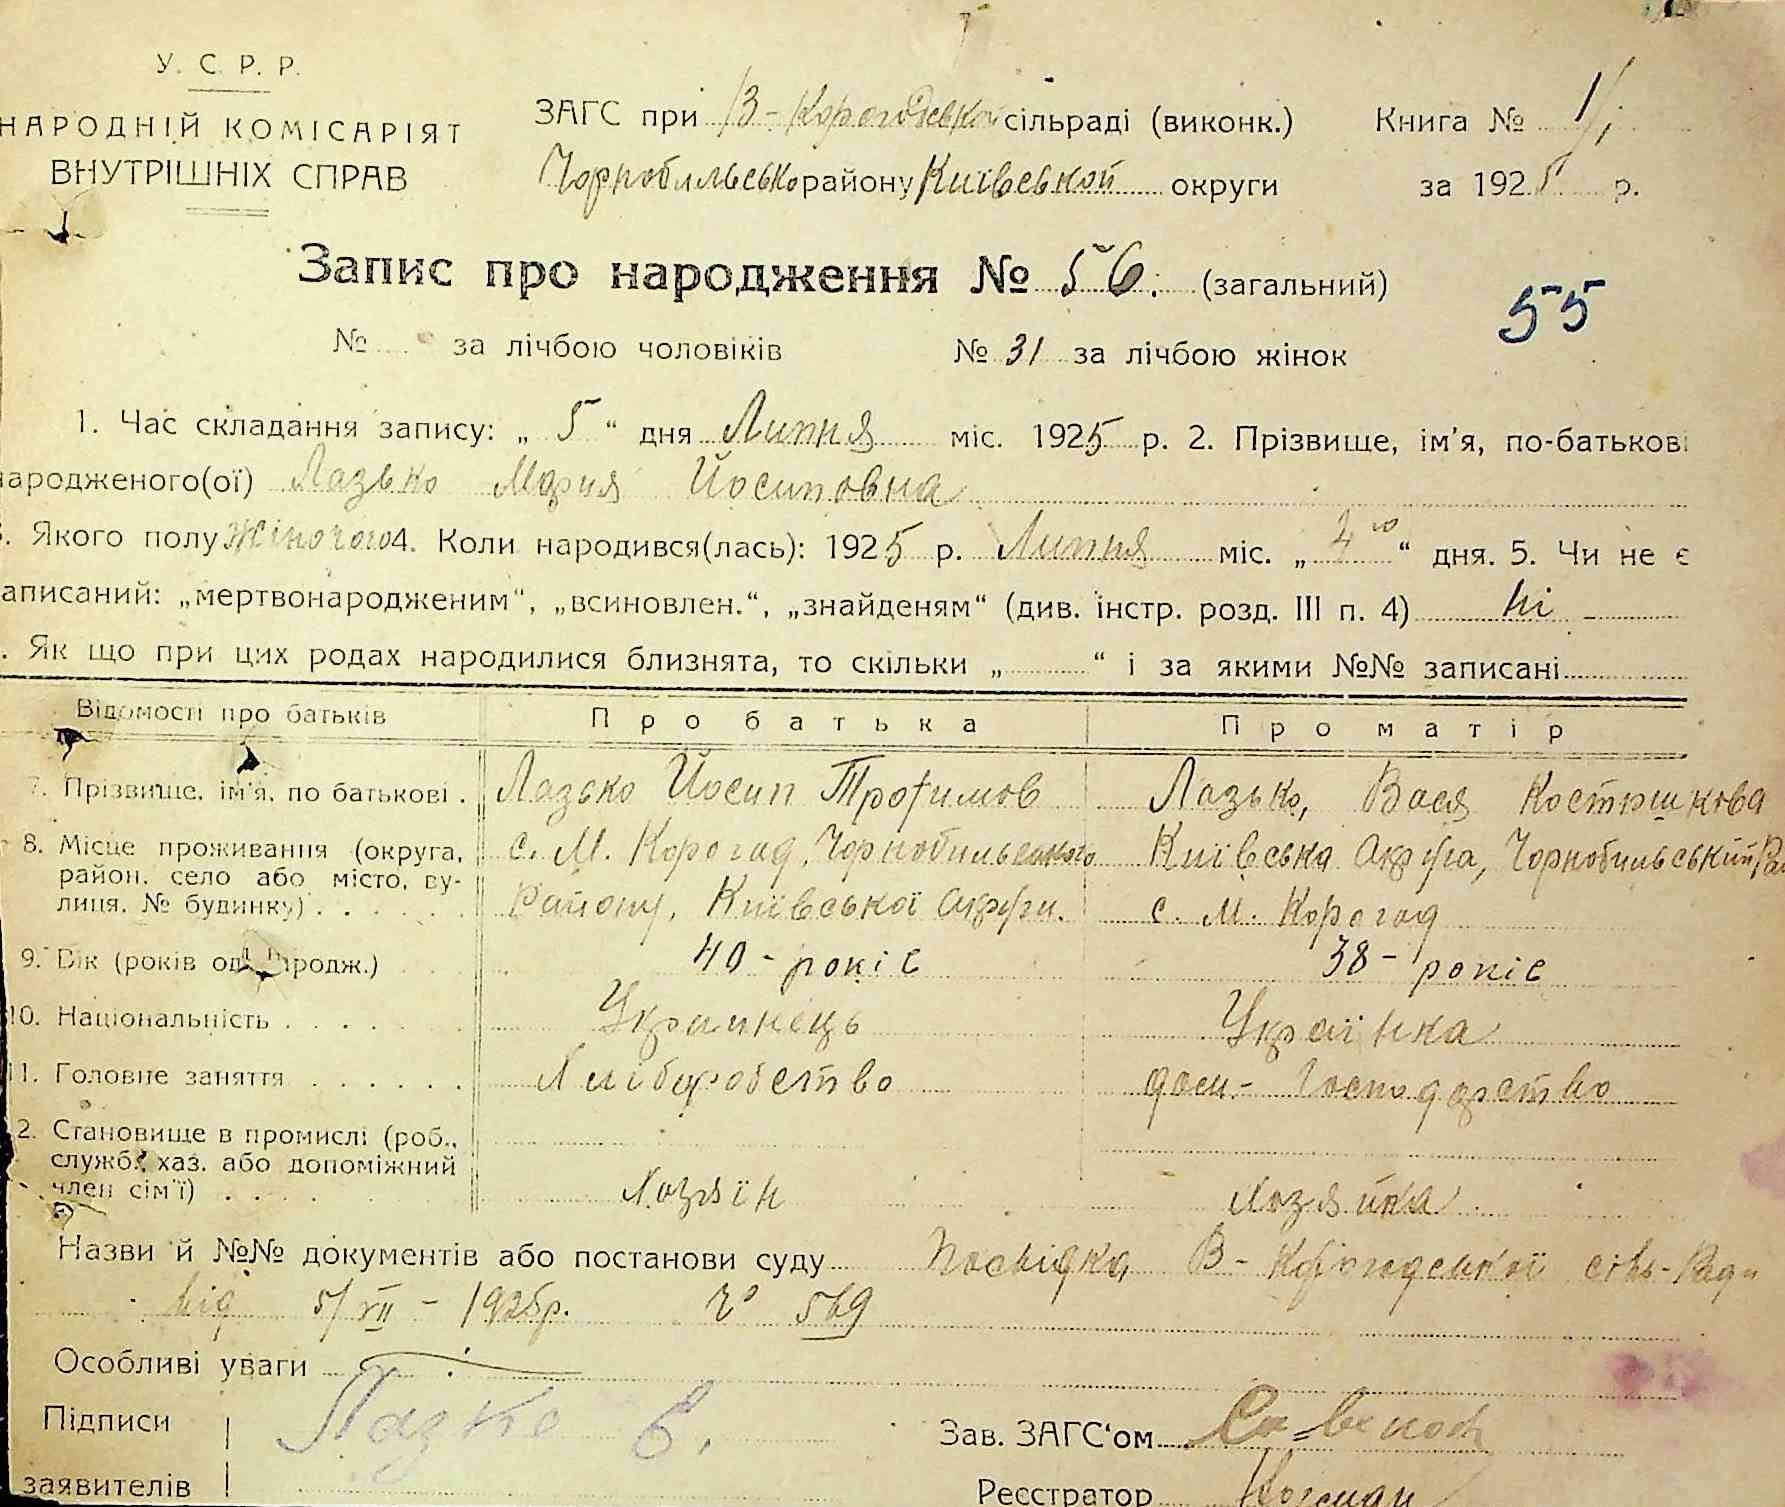 У. С. Р. Р.
НАРОДНІЙ КОМІСАРІЯТ
ВНУТРІШНІХ СПРАВ
ЗАГС при В-Корогодській сільраді (виконк.)
Чорнобильсько району Київськой округи
Книга № 1/;
за 1925 р.
Запис про народження № 56. (загальний)
55
№ за лічбою чоловіків № 31 за лічбою жінок
1. Час складання запису: „ 5 “ дня Липня міс. 1925 р. 2. Прізвище, ім'я, по-батькові
народженого(ої) Лазько Мария Йосиповна
Якого полу Жіночого 4. Коли народився(лась): 1925 р. Липня міс. „ 4го “ дня. 5. Чи не є
аписаний: „мертвонародженим“, „всиновлен.“, „знайденям“ (див. інстр. розд. III п. 4) ні
. Як що при цих родах народилися близнята, то скільки „ “ і за якими №№ записані
Відомості про батьків Про батька Про матір
7. Прізвище, ім'я, по батькові . Лазько Йосип Трофимов Лазько, Вася
8. Місце проживання (округа, район, село або місто, вулиця, № будинку) с. М. Корогод, Чорнобильського Київська Округа, Чорнобильський
Району, Київської Округи. с. М. Корогод
9. Вік (років од народж.) 40 - років 38 - років
10. Національність Украинець Українка
11. Головне заняття Хліборобство дом.- Господарство
2. Становище в промислі (роб.,
служб., хаз. або допоміжний
член сім'ї) Хозяїн Хозяйка
Назви й №№ документів або постанови суду Посвідка В- Корогодської сіль-Ради
від 5/VII - 1925р. № 569
Особливі уваги
Підписи Лазко
заявителів
Зав. ЗАГС'ом
Реєстратор